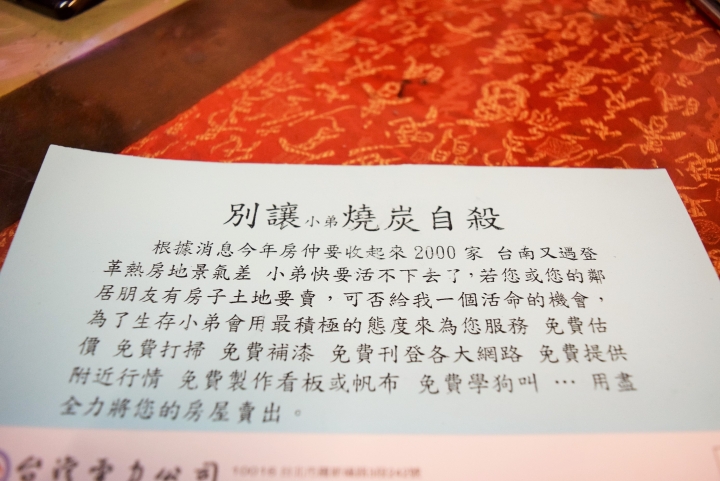 別讓小弟燒炭自殺
根據消息今年房仲要收起來2000家 台南又遇登
革熱房地景氣差 小弟快要活不下去了,若您或您的鄰
居朋友有房子土地要賣,可否給我一個活命的機會,
為了生存小弟會用最積極的態度來為您服務 免費估
價 免費打掃 免費補漆 免費刊登各大網路 免費提供
附近行情 免費製作看板或帆布 免費學狗叫 … 用盡
全力將您的房屋賣出。
台灣電力公司 10016 台北市羅斯福路3段242號